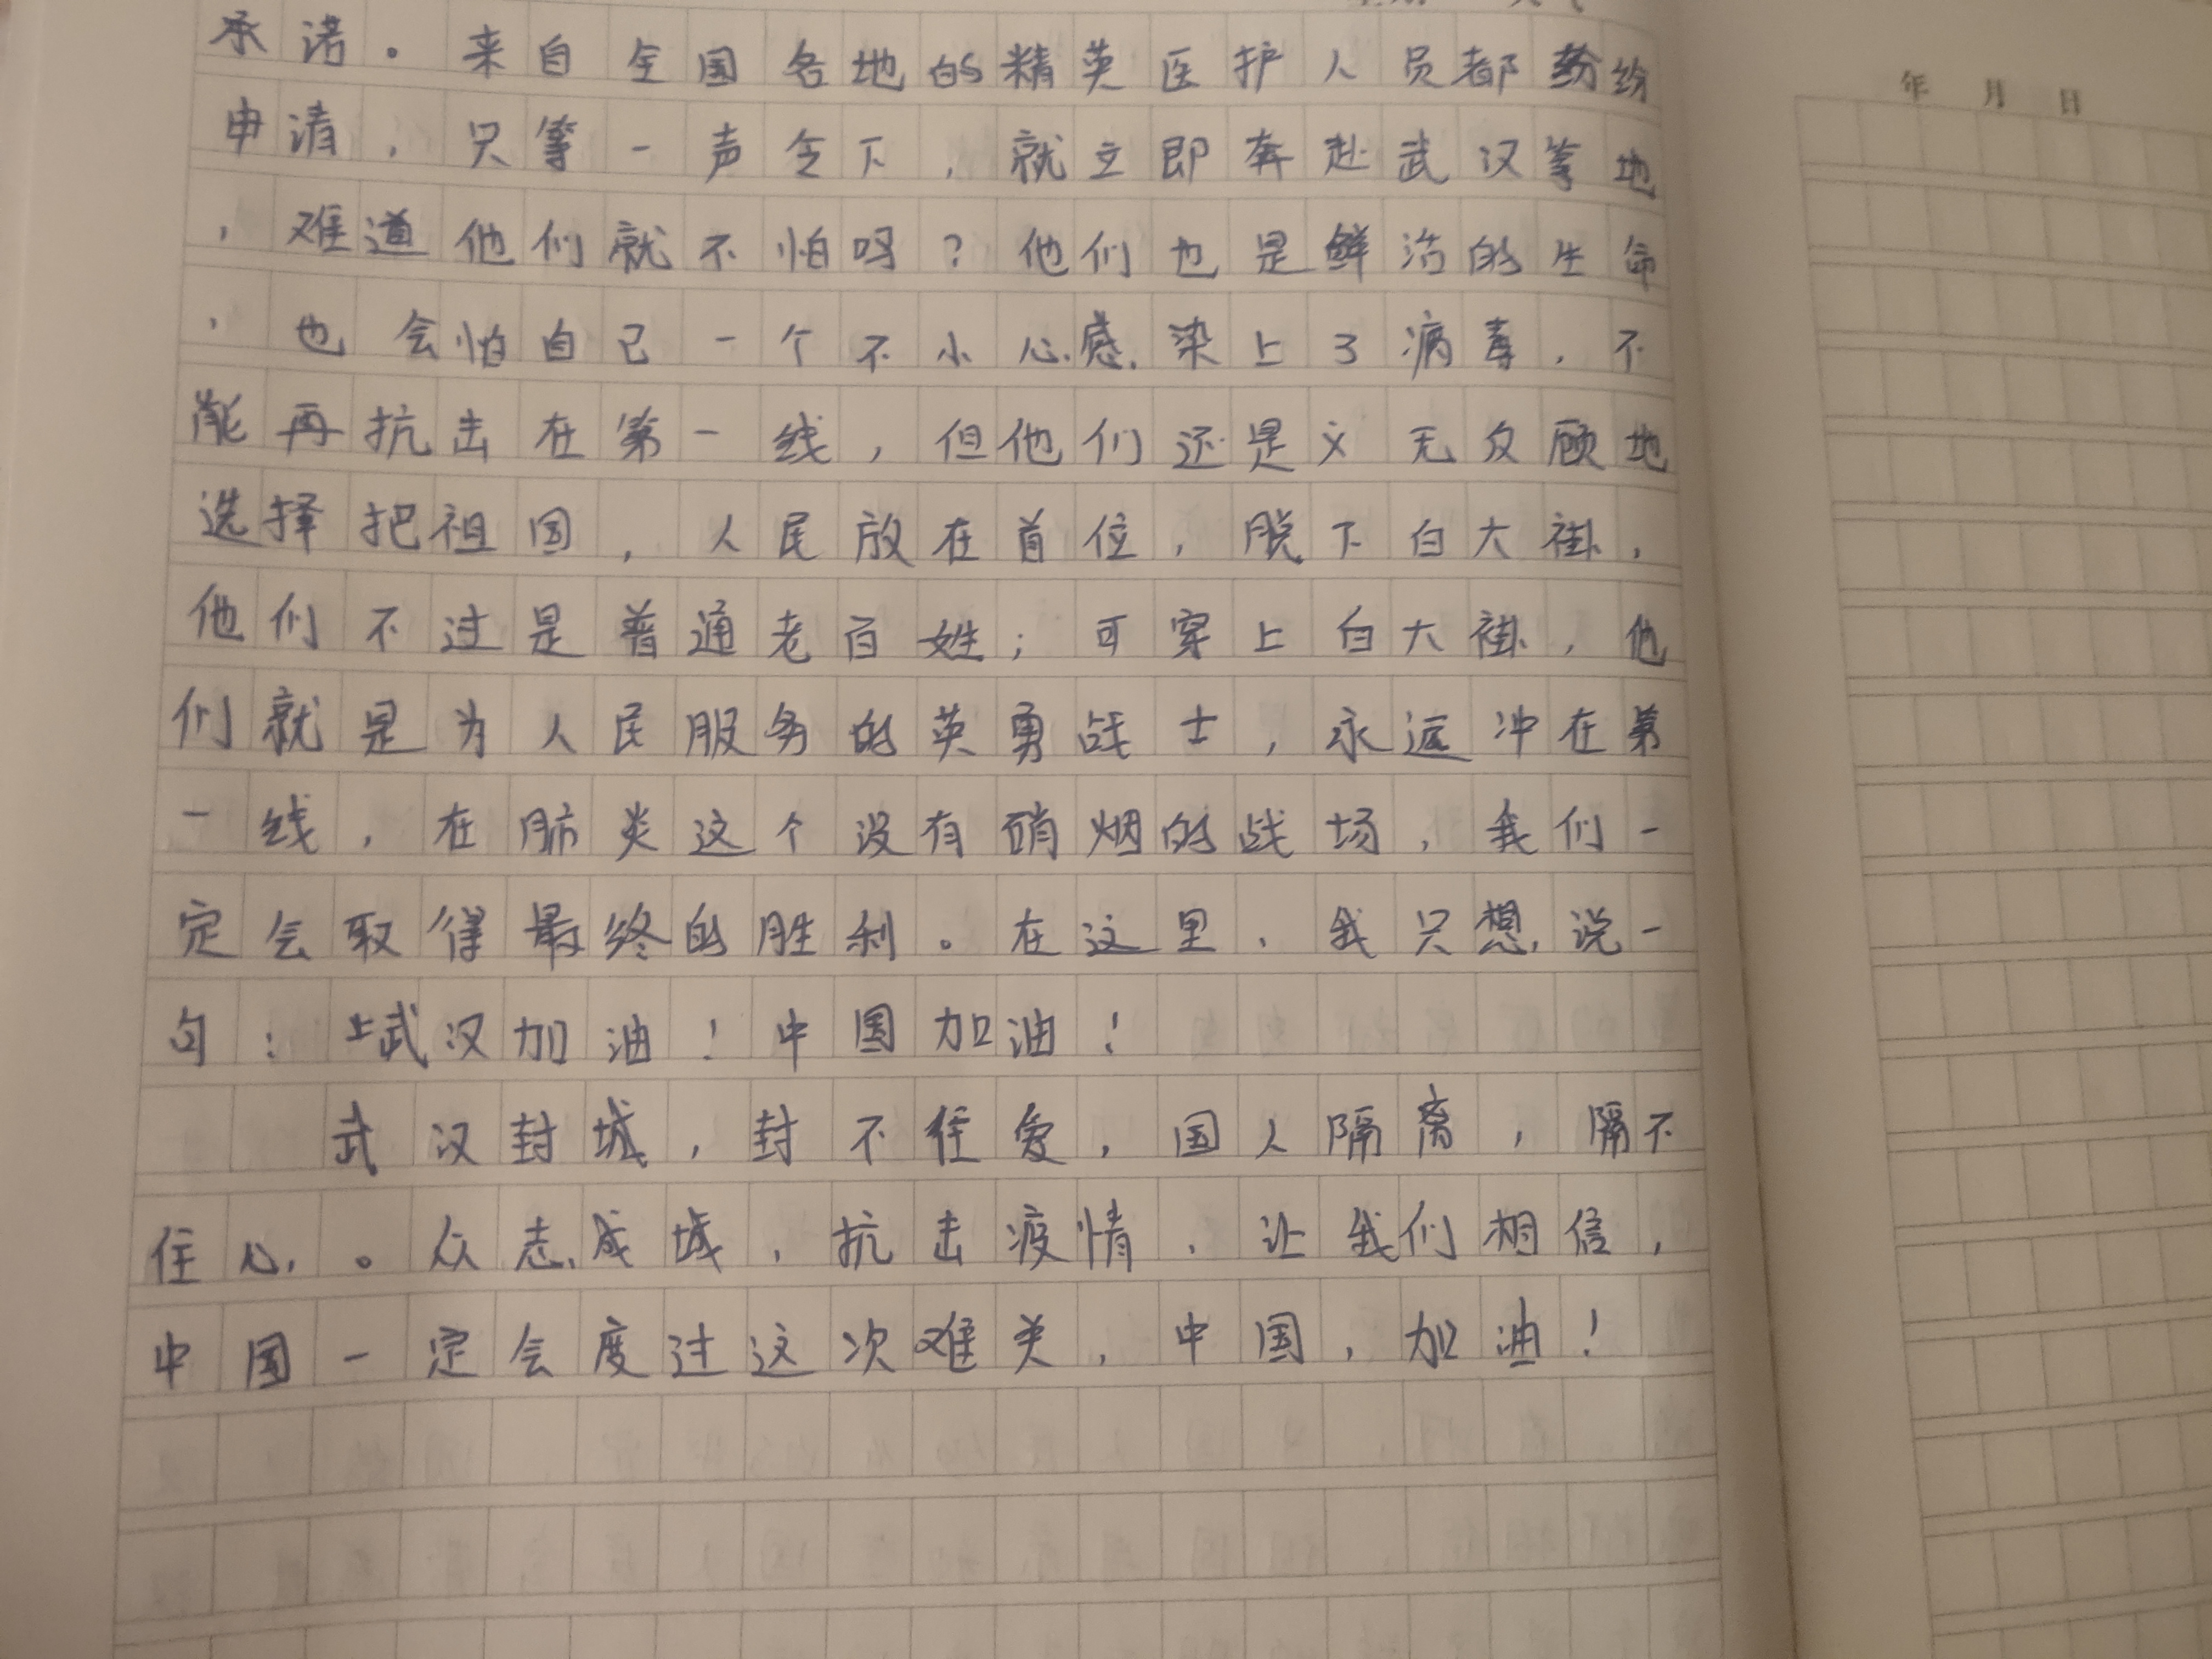 承诺。来自全国各地的精英医护人员都纷纷
申请，只等一声令下，就立即奔赴武汉等地
，难道他们就不怕吗？他们也是鲜活的生命
，也会怕自己一个不小心感染上了病毒，不
能再抗击在第一线，但他们还是义无反顾地
选择把祖国，人民放在首位，脱下白大褂，
他们不过是普通老百姓；可穿上白大褂，他
们就是为人民服务的英勇战士，永远冲在第
一线，在肺炎这个没有硝烟的战场，我们一
定会取得最终的胜利。在这里，我只想说一
句：武汉加油！中国加油！
武汉封城，封不住爱，国人隔离，隔不
住心。众志成城，抗击疫情，让我们相信，
中国一定会度过这次难关，中国，加油！
年 月 日